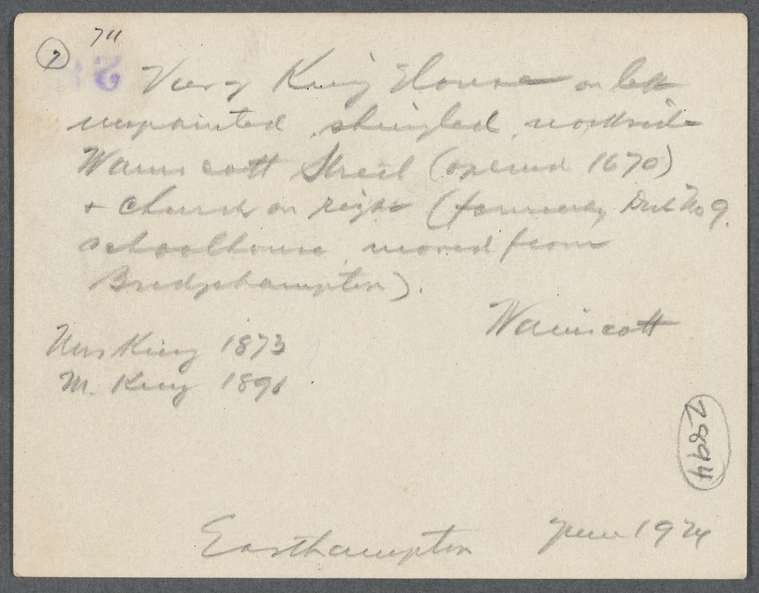 7
711
View of King House on left
unpainted, shingled, northside
Wainscott Street (opened 1670)
+ church on right (formerly Dist No 9.
schoolhouse moved from
Bridgehampton).
Wainscott
Mrs King 1873
M. King 1896
2894
Easthampton June 1924